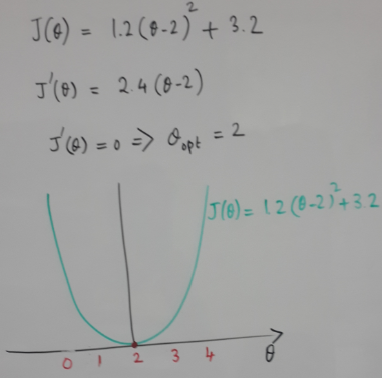 J(θ) = 1.2(θ-2)² + 3.2
J'(θ) = 2.4(θ-2)
J'(θ) = 0 => θopt = 2
J(θ) = 1.2(θ-2)² + 3.2
0 1 2 3 4 θ